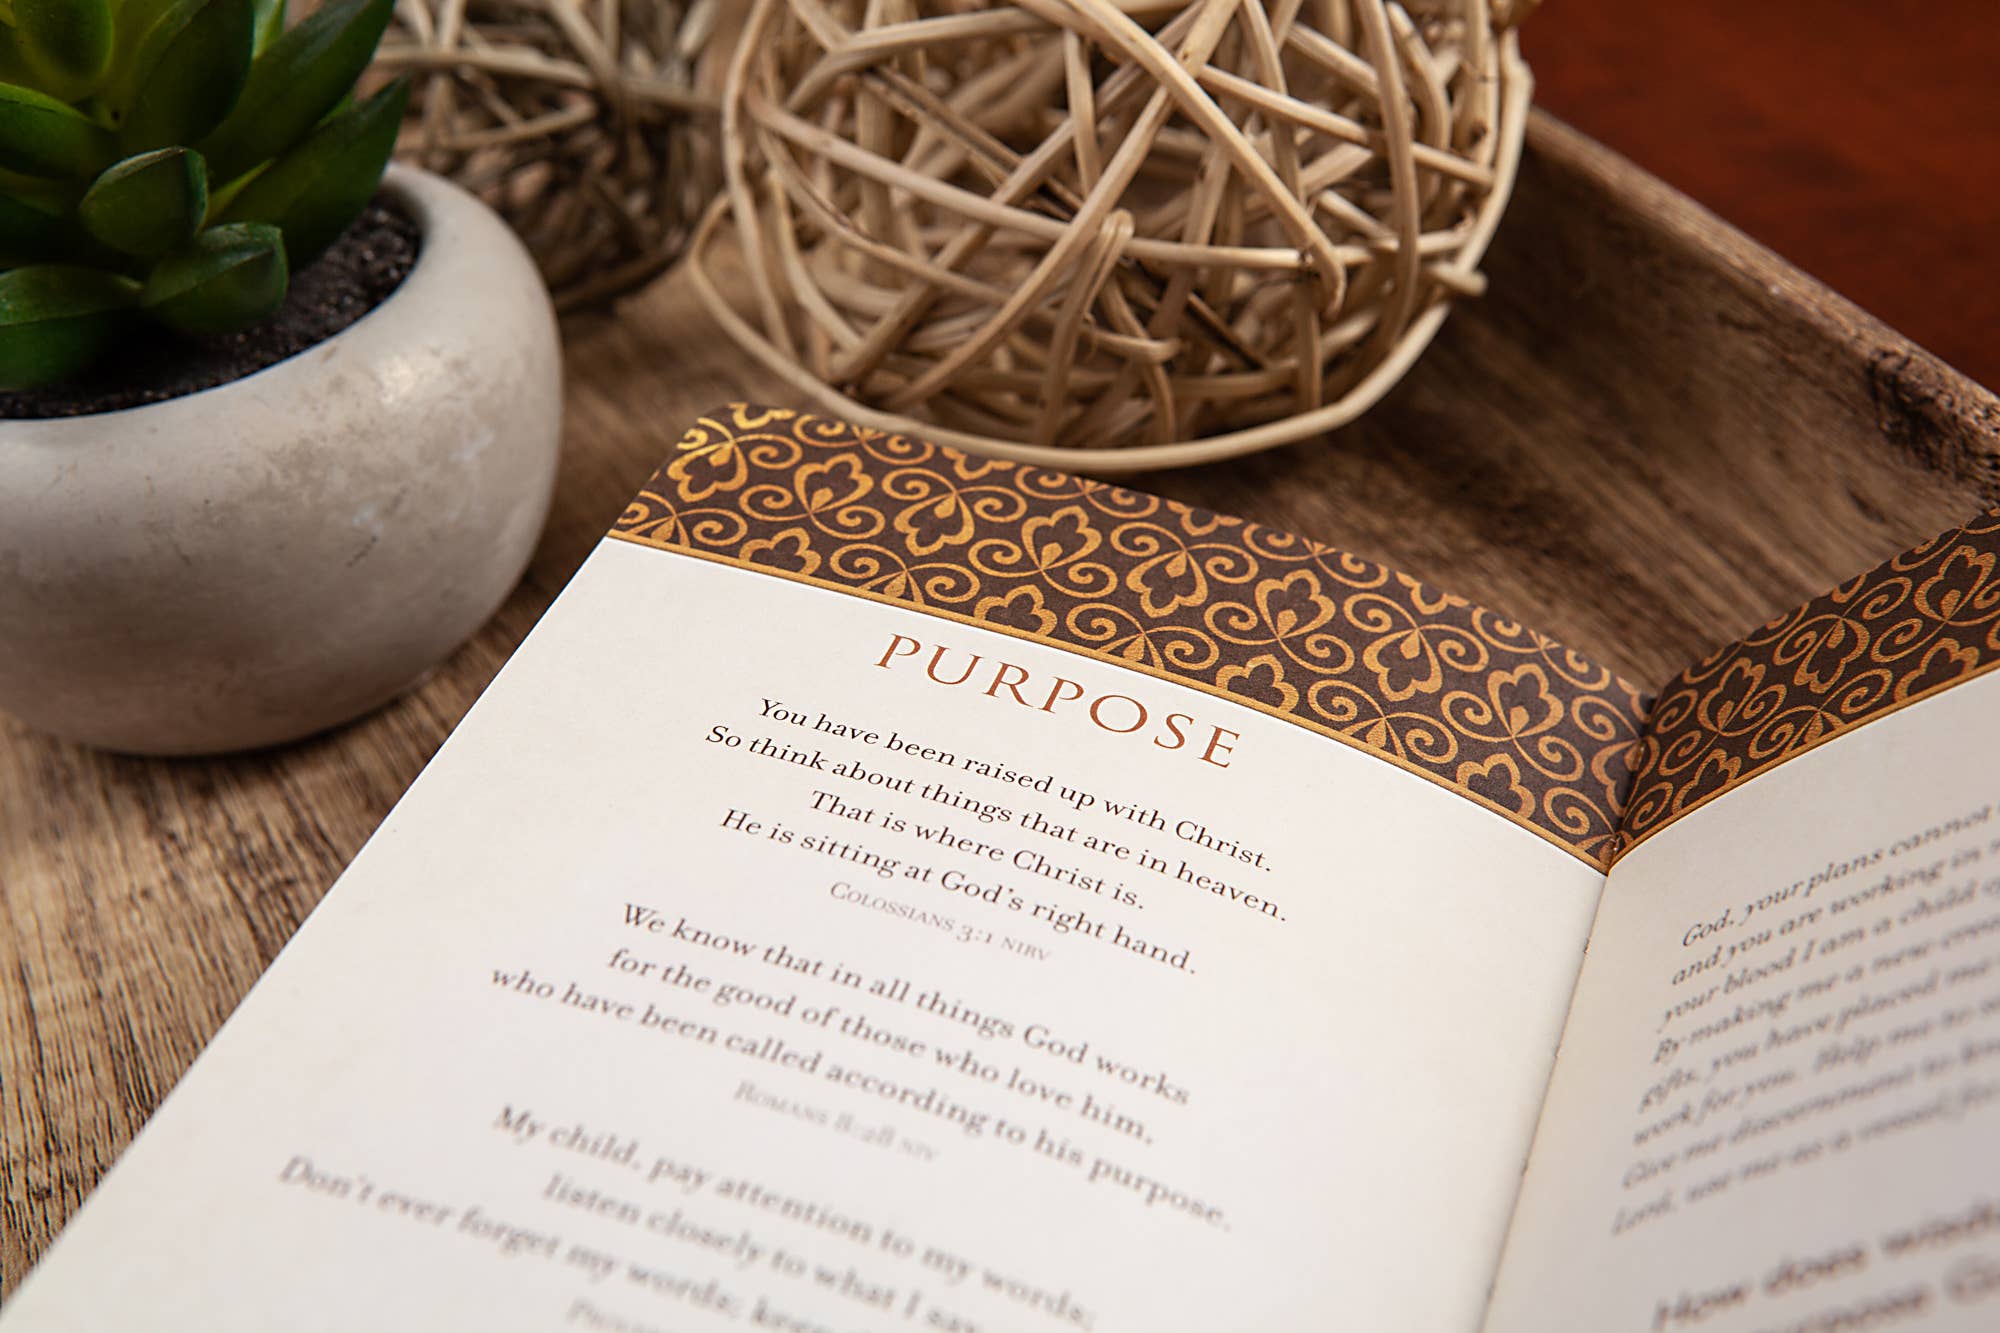 PURPOSE
You have been raised up with Christ.
So think about things that are in heaven.
That is where Christ is.
He is sitting at God's right hand.
COLOSSIANS 3:1 NIRV
We know that in all things God works
for the good of those who love him,
who have been called according to his purpose.
ROMANS 8:28 NIV
My child, pay attention to my words;
listen closely to what I say.
Don't ever forget my words;
God, your plans cannot
and you are working in
your blood I am a child
By making me a new
gifts, you have placed me
work for you. Help me to
Give me discernment to
Lord, use me as a vessel
How does